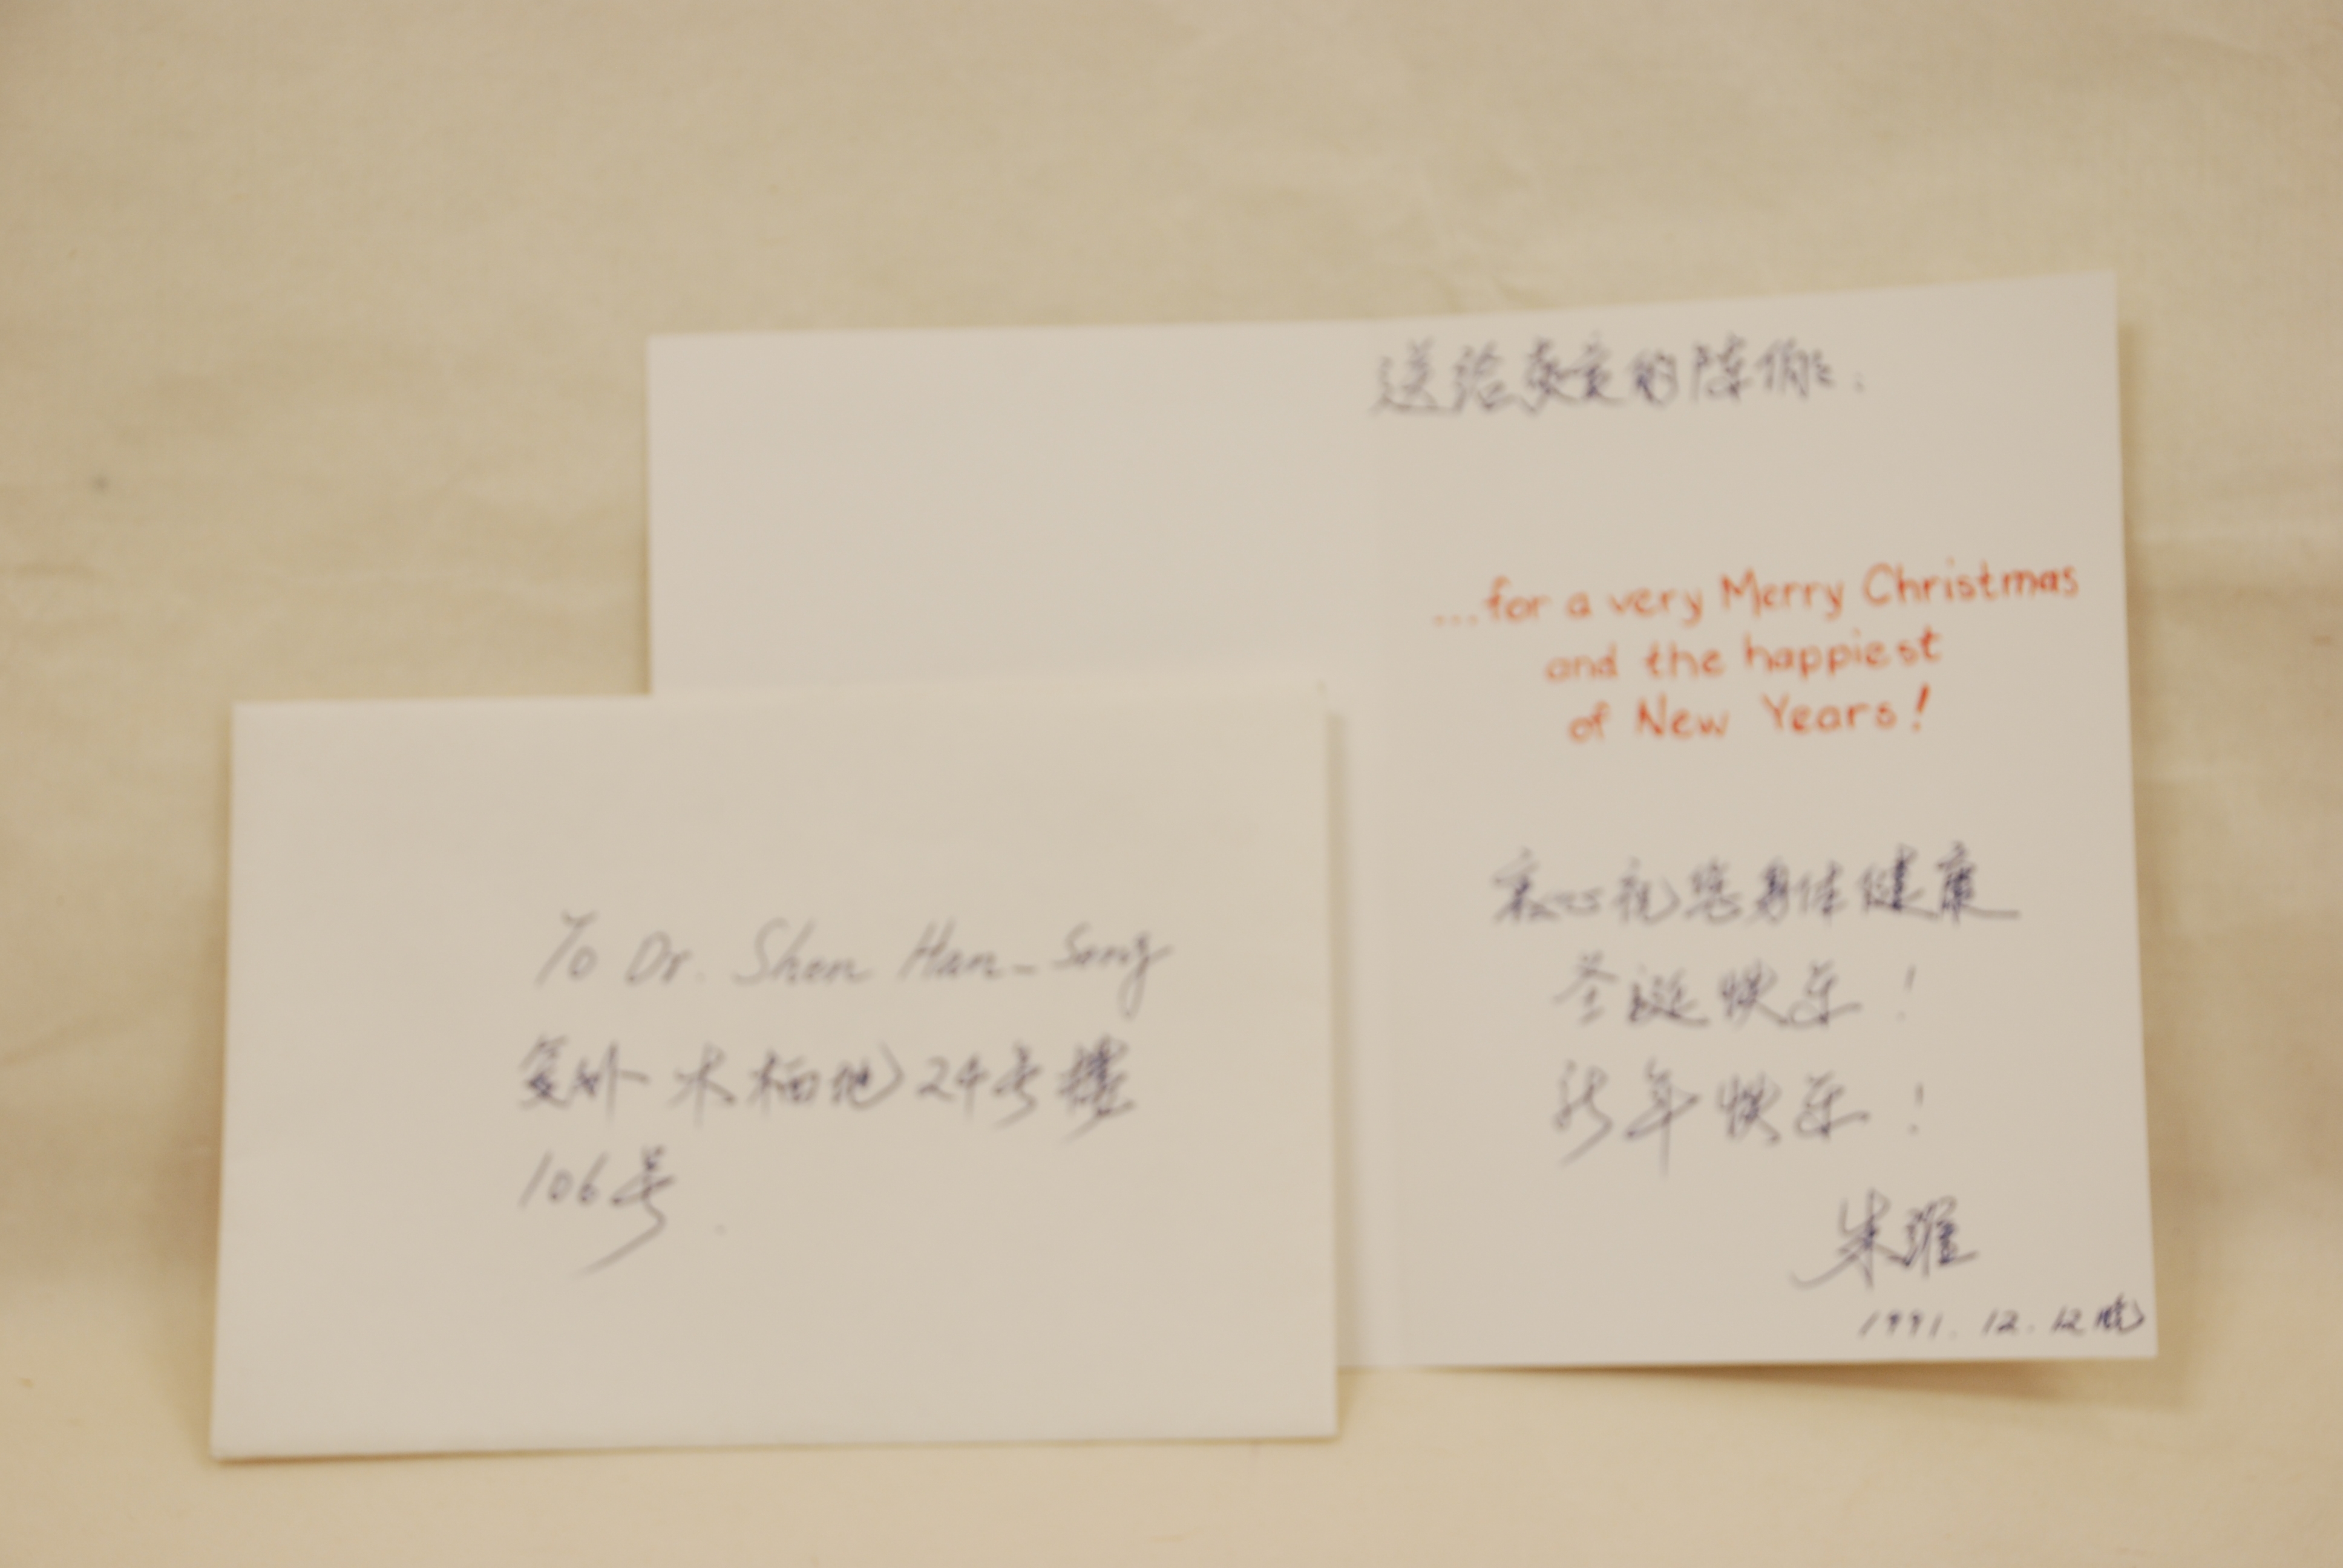 送给亲爱的陈伯伯:
...for a very Merry Christmas
and the happiest
of New Years!
衷心祝您身体健康
圣诞快乐!
新年快乐!
朱維
1991.12.12晚
To Dr. Shen Han-Seng
复外木樨地24号楼
106号.